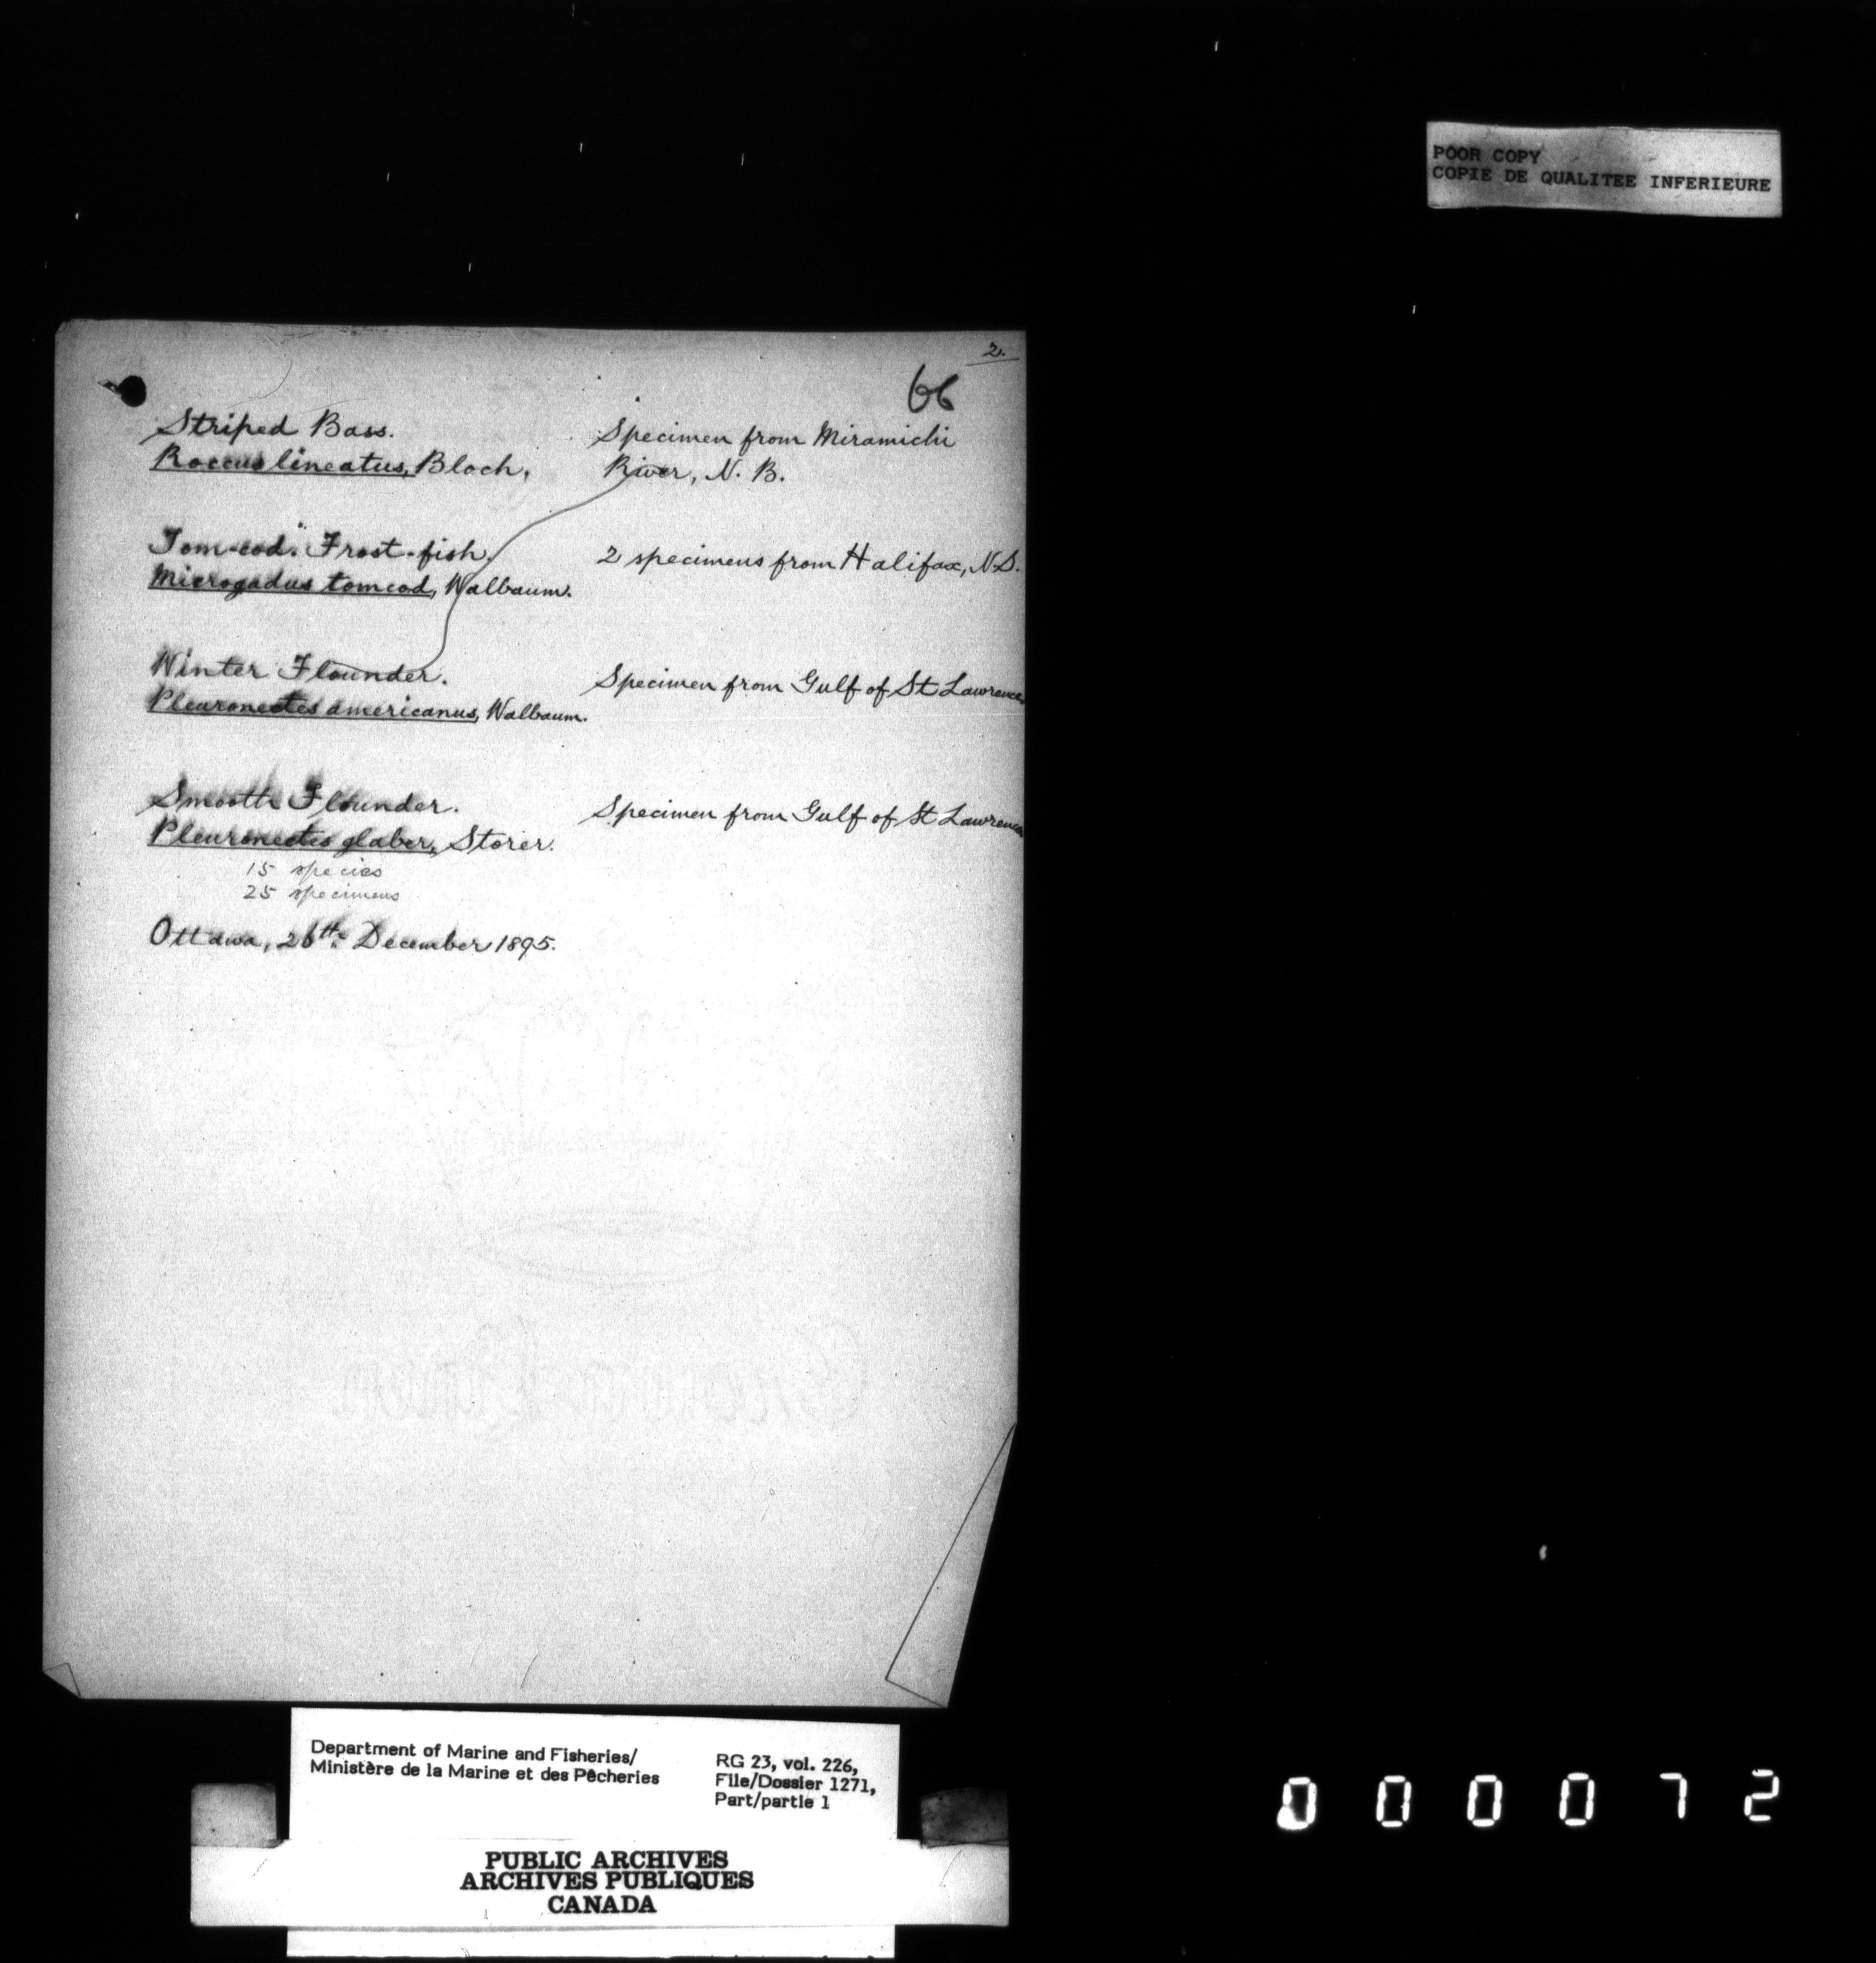 POOR COPY
COPIE DE QUALITEE INFERIEURE
2.
66
Striped Bass. Specimen from Miramichi
Roccus lineatus, Bloch, River, N. B.
Tom-cod. Frost-fish. 2 specimens from Halifax, N.S.
Microgadus tomcod, Walbaum.
Winter Flounder. Specimen from Gulf of St Lawrence
Pleuronectes americanus, Walbaum.
Smooth Flounder. Specimen from Gulf of St Lawrence
Pleuronectes glaber, Storer.
15 species
25 specimens
Ottawa, 26th December 1895.
Department of Marine and Fisheries/ RG 23, vol. 226,
Ministère de la Marine et des Pêcheries File/Dossier 1271,
Part/partie 1
PUBLIC ARCHIVES
ARCHIVES PUBLIQUES
CANADA
000072